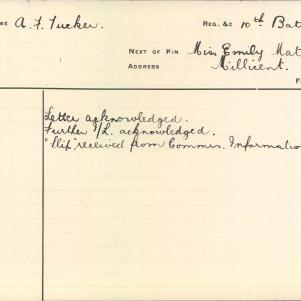 ME A. F. Tucker. REG. &C 10th Bat
NEXT OF KIN Miss Emily Mat
ADDRESS Millicent.
F
Letter acknowledged.
Further I/L. acknowledged.
"Slip" received from Commrs. Informatio